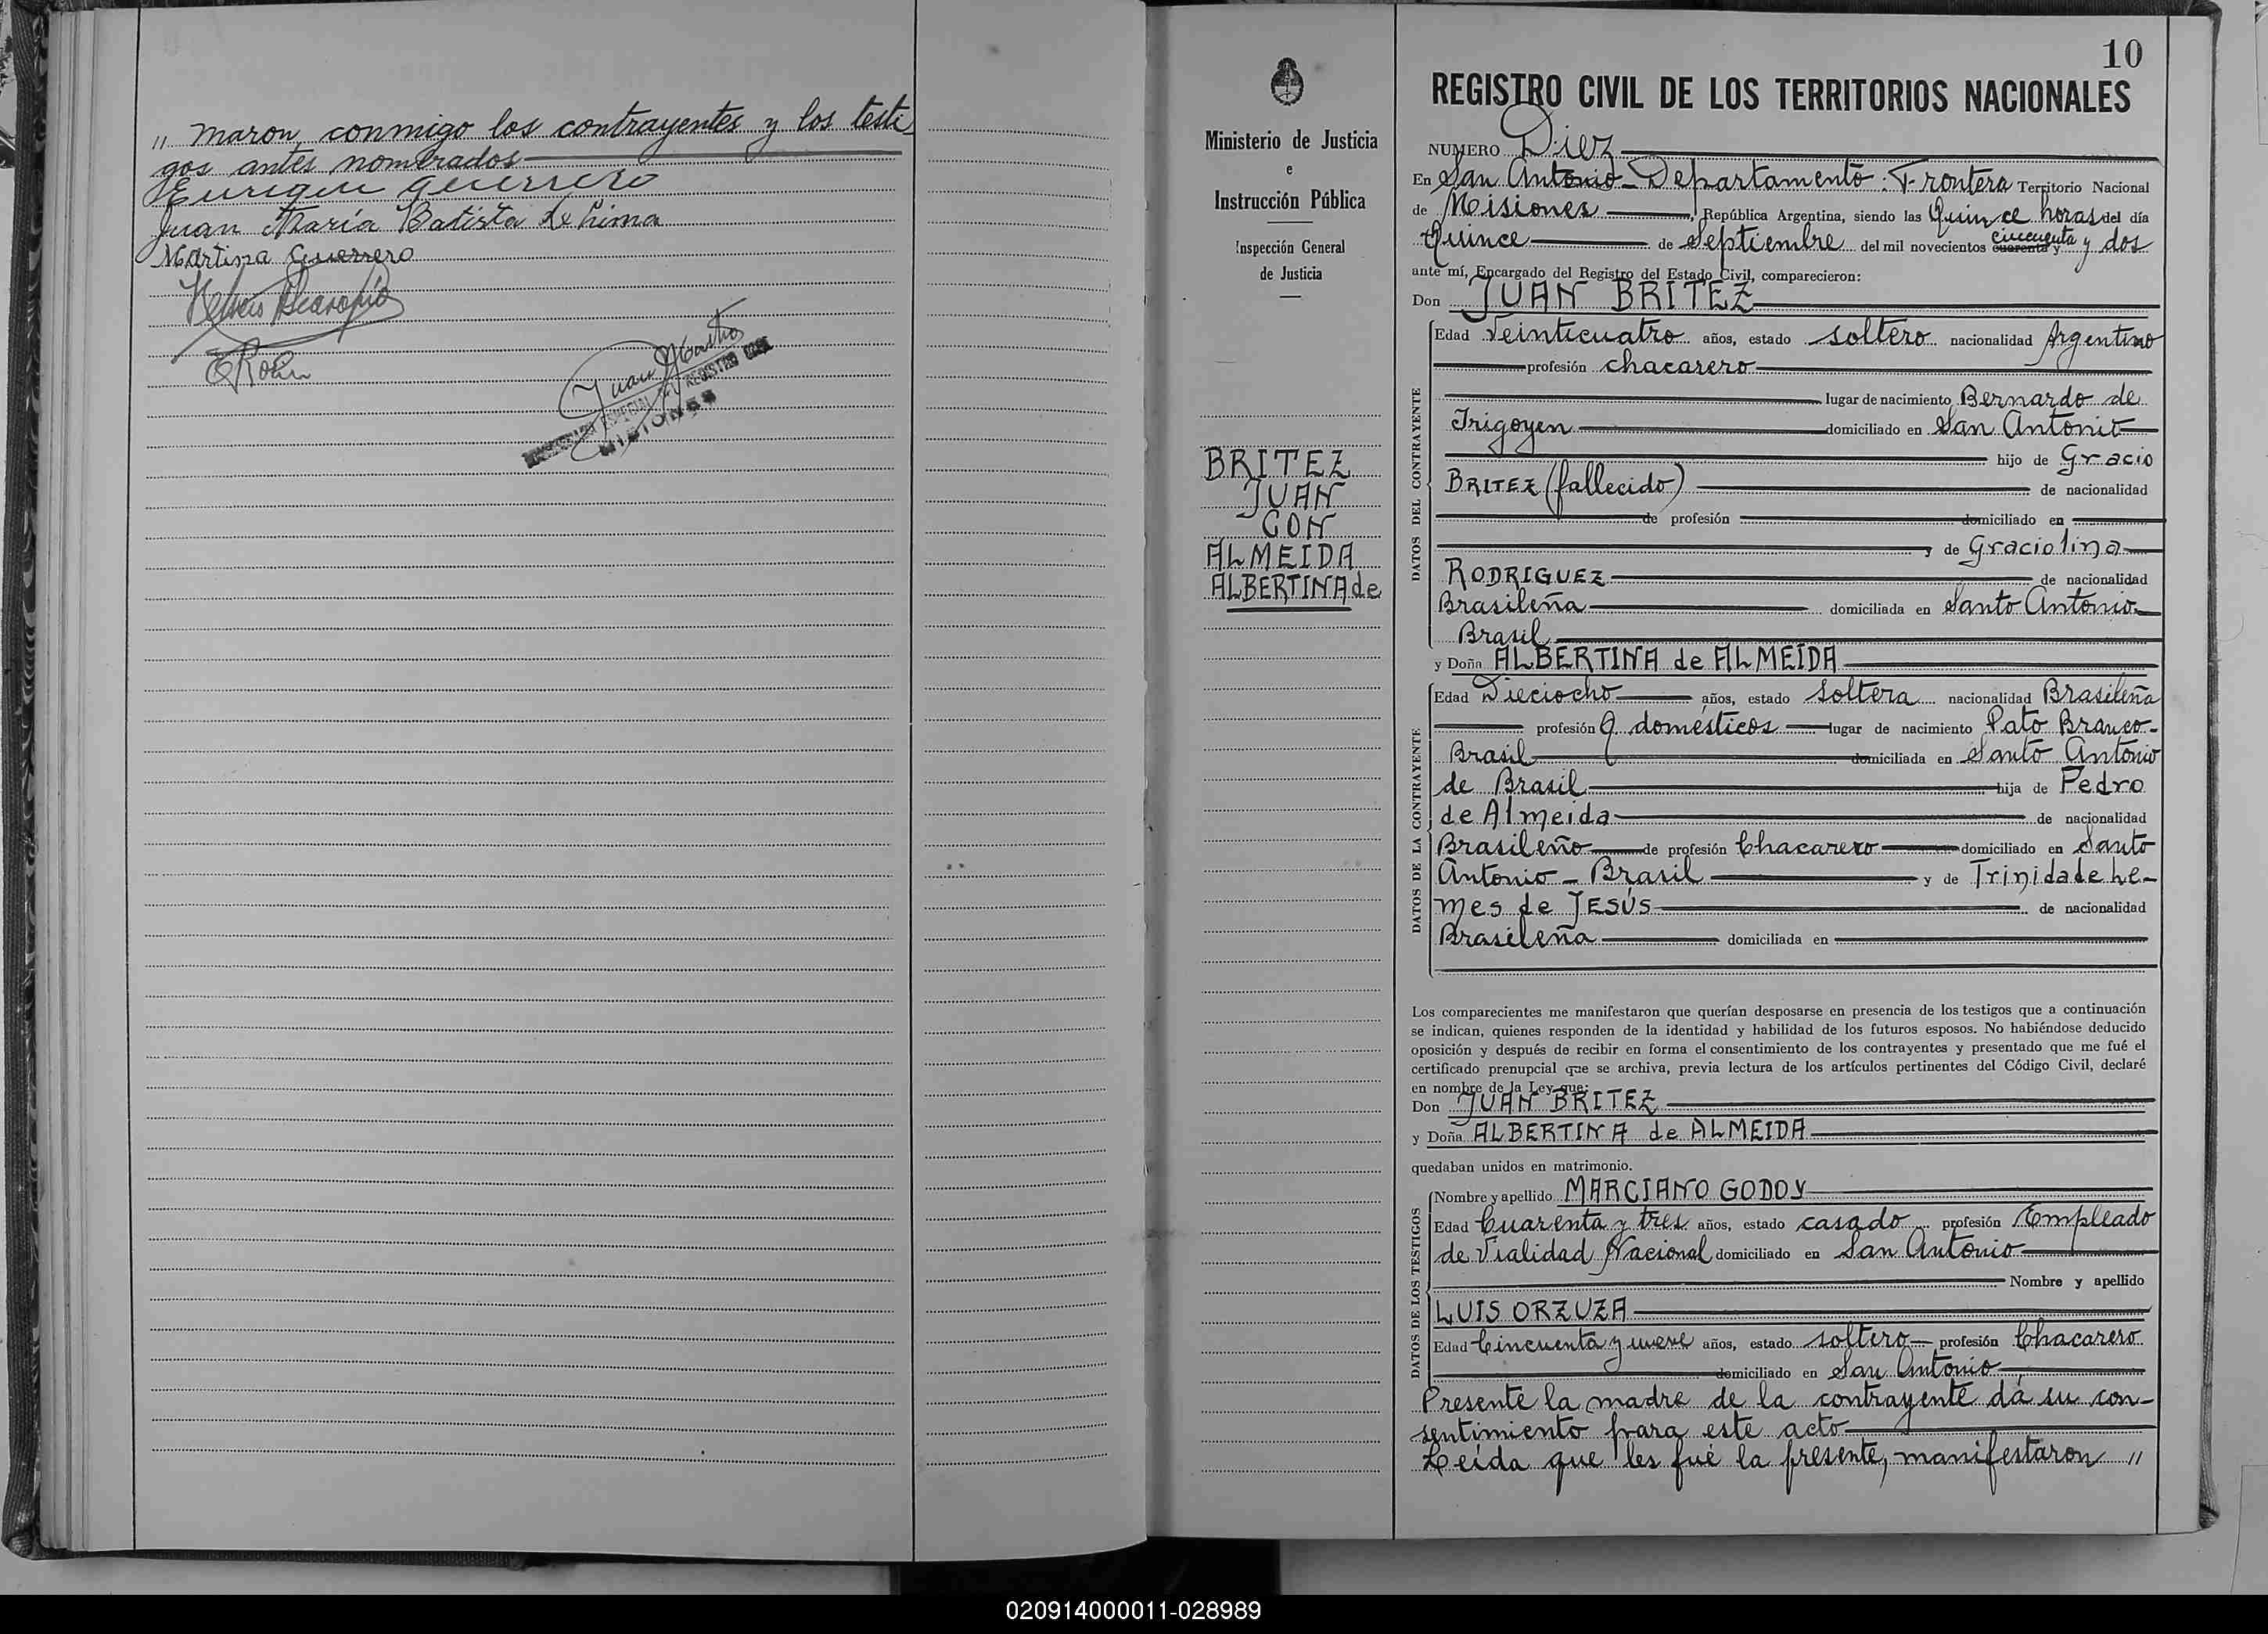 " maron, conmigo los contrayentes y los testi
gos antes nombrados
Enrique Guerrero
Juan María Batista de Lima
Martina Guerrero
Juan
MISIONES
Ministerio de Justicia
e
Instrucción Pública
Inspección General
de Justicia
BRITEZ
JUAN
CON
ALMEIDA
ALBERTINA de
10
REGISTRO CIVIL DE LOS TERRITORIOS NACIONALES
NUMERO Diez
En San Antonio - Departamento: Frontera Territorio Nacional
de Misiones, República Argentina, siendo las Quince horas del día
Quince de Septiembre del mil novecientos cuarenta y cincuenta y dos
ante mí, Encargado del Registro del Estado Civil, comparecieron:
Don JUAN BRITEZ
DATOS DEL CONTRAYENTE
Edad Veinticuatro años, estado soltero nacionalidad Argentino
profesión chacarero
lugar de nacimiento Bernardo de
Irigoyen domiciliado en San Antonio
hijo de Gracio
BRITEZ (fallecido) de nacionalidad
de profesión domiciliado en
y de Graciolina
RODRIGUEZ de nacionalidad
Brasileña domiciliada en Santo Antonio
Brasil
y Doña ALBERTINA de ALMEIDA
DATOS DE LA CONTRAYENTE
Edad Dieciocho años, estado soltera nacionalidad Brasileña
profesión q. domésticos lugar de nacimiento Pato Branco-
Brasil domiciliada en Santo Antonio
de Brasil hija de Pedro
de Almeida de nacionalidad
Brasileño de profesión Chacarero domiciliado en Santo
Antonio - Brasil y de Trinidade Le-
mes de JESÚS de nacionalidad
Brasileña domiciliada en
Los comparecientes me manifestaron que querían desposarse en presencia de los testigos que a continuación
se indican, quienes responden de la identidad y habilidad de los futuros esposos. No habiéndose deducido
oposición y después de recibir en forma el consentimiento de los contrayentes y presentado que me fué el
certificado prenupcial que se archiva, previa lectura de los artículos pertinentes del Código Civil, declaré
en nombre de la Ley que:
Don JUAN BRITEZ
y Doña ALBERTINA de ALMEIDA
quedaban unidos en matrimonio.
DATOS DE LOS TESTIGOS
Nombre y apellido MARCIANO GODOY
Edad Cuarenta y tres años, estado casado profesión Empleado
de Vialidad Nacional domiciliado en San Antonio
Nombre y apellido
LUIS ORZUZA
Edad Cincuenta y nueve años, estado soltero profesión Chacarero
domiciliado en San Antonio
Presente la madre de la contrayente dá su con-
sentimiento para este acto
Leída que les fué la presente, manifestaron "
020914000011-028989